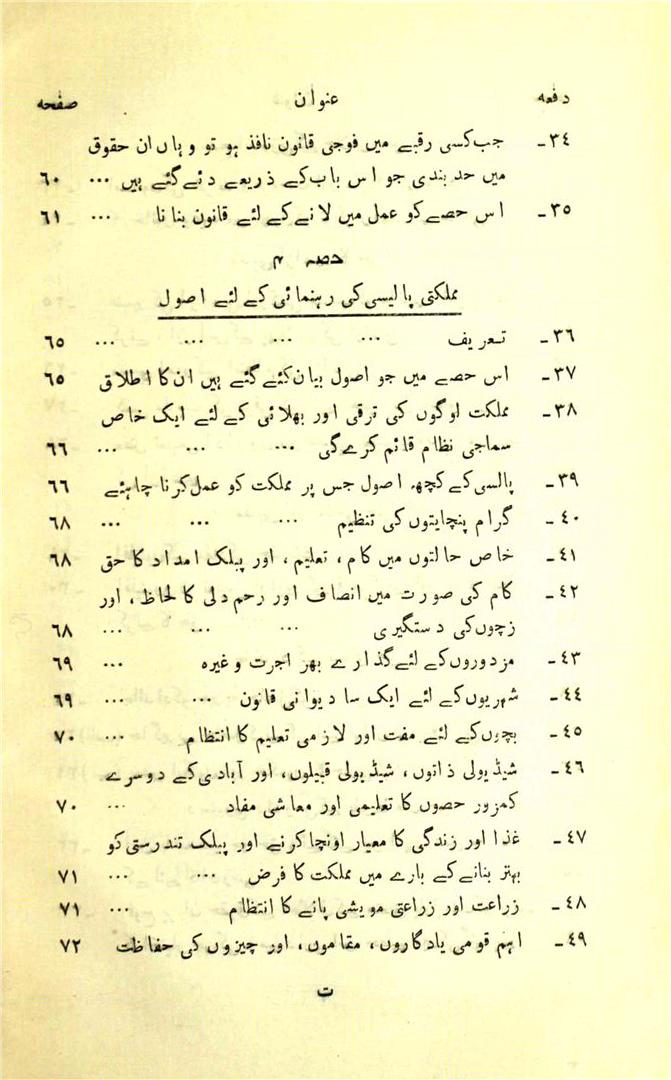 دفعہ عنوان صفحہ
۳۴۔ جب کسی رقبے میں فوجی قانون نافذ ہو تو وہاں ان حقوق
میں حد بندی جو اس باب کے ذریعے دئے گئے ہیں ... ۶۰
۳۵۔ اس حصے کو عمل میں لانے کے لئے قانون بنانا ... ۶۱
حصہ ۴
مملکتی پالیسی کی رہنمائی کے لئے اصول
۳۶۔ تعریف ... ... ... ... ۶۵
۳۷۔ اس حصے میں جو اصول بیان کئے گئے ہیں ان کا اطلاق ۶۵
۳۸۔ مملکت لوگوں کی ترقی اور بھلائی کے لئے ایک خاص
سماجی نظام قائم کرے گی ... ... ... ۶۶
۳۹۔ پالسی کے کچھ اصول جس پر مملکت کو عمل کرنا چاہئے ۶۶
۴۰۔ گرام پنچایتوں کی تنظیم ... ... ... ۶۸
۴۱۔ خاص حالتوں میں کام، تعلیم، اور پبلک امداد کا حق ۶۸
۴۲۔ کام کی صورت میں انصاف اور رحم دلی کا لحاظ، اور
زچوں کی دستگیری ... ... ... ۶۸
۴۳۔ مزدوروں کے لئے گذارے بھر اجرت وغیرہ ... ۶۹
۴۴۔ شہریوں کے لئے ایک سا دیوانی قانون ... ... ۶۹
۴۵۔ بچوں کے لئے مفت اور لازمی تعلیم کا انتظام ... ۷۰
۴۶۔ شیڈیولی ذاتوں، شیڈیولی قبیلوں، اور آبادی کے دوسرے
کمزور حصوں کا تعلیمی اور معاشی مفاد ... ۷۰
۴۷۔ غذا اور زندگی کا معیار اونچا کرنے اور پبلک تندرستی کو
بہتر بنانے کے بارے میں مملکت کا فرض ... ... ۷۱
۴۸۔ زراعت اور زراعتی مویشی پانے کا انتظام ... ۷۱
۴۹۔ اہم قومی یادگاروں، مقاموں، اور چیزوں کی حفاظت ۷۲
ت